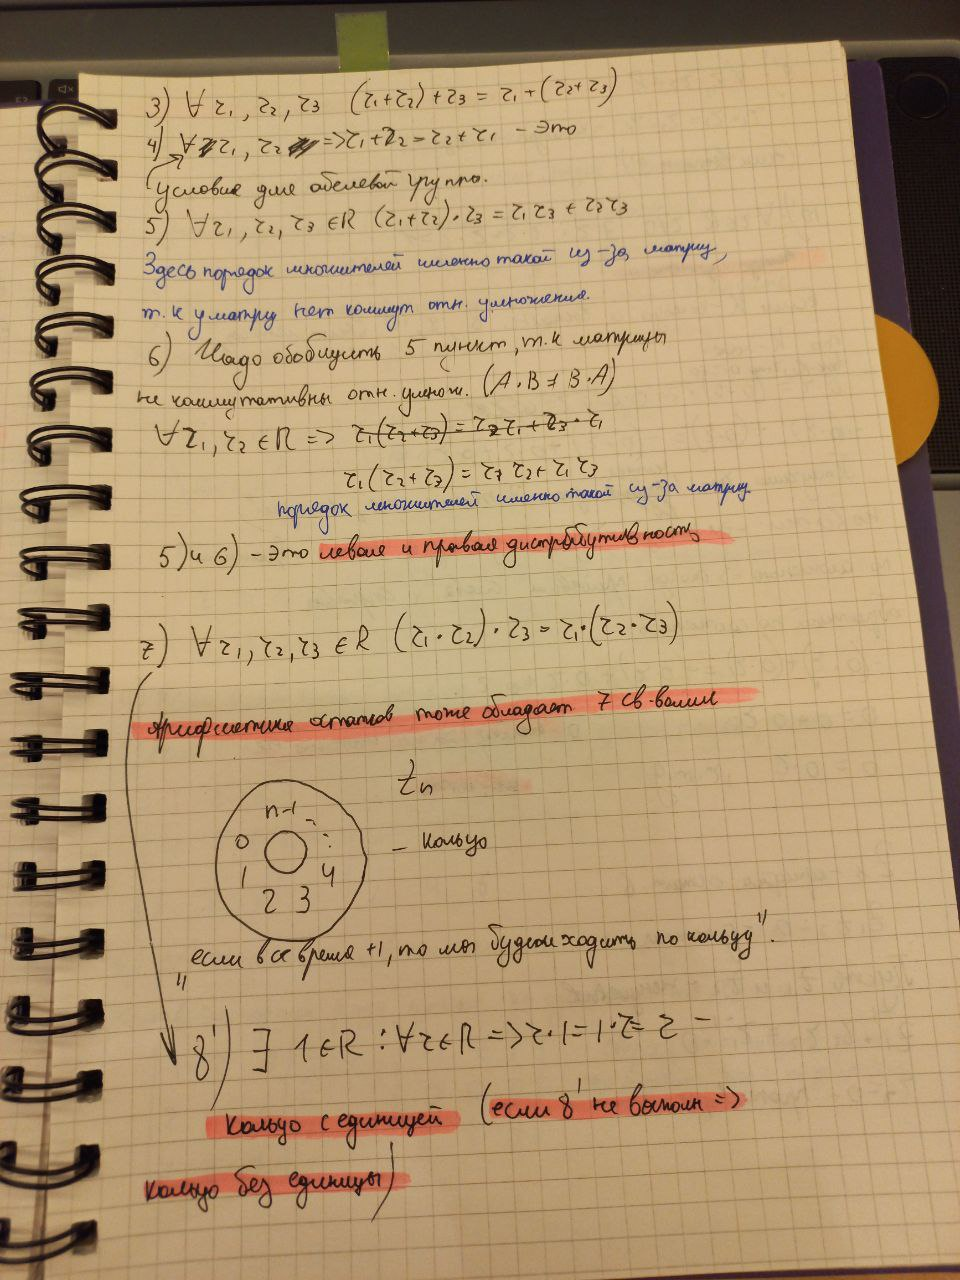 3) ∀ τ₁, τ₂, τ₃ (τ₁+τ₂)+τ₃ = τ₁+(τ₂+τ₃)
4) ∀ τ₁, τ₂ => τ₁+τ₂ = τ₂+τ₁ - это
условие для абелевой группы.
5) ∀ τ₁, τ₂, τ₃ ∈ R (τ₁+τ₂)·τ₃ = τ₁τ₃ + τ₂τ₃
Здесь порядок множителей именно такой из-за матриц,
т.к у матриц нет коммут отн. умножения.
6) Надо обобщить 5 пункт, т.к матрицы
не коммутативны отн. умнож. (A·B ≠ B·A)
∀τ₁, τ₂ ∈ R => τ₁(τ₂+τ₃) = τ₂τ₁ + τ₃·τ₁
τ₁(τ₂+τ₃) = τ₁τ₂ + τ₁τ₃
порядок множителей именно такой из-за матриц.
5) и 6) - это левая и правая дистрибутивность
7) ∀ τ₁, τ₂, τ₃ ∈ R (τ₁·τ₂)·τ₃ = τ₁·(τ₂·τ₃)
Арифметика остатков тоже обладает 7 св-вами
Zn
n-1
0
- Кольцо
1 4
2 3
"если все время +1, то мы будем ходить по кольцу".
8') ∃ 1 ∈ R : ∀τ ∈ R => τ·1 = 1·τ = τ -
Кольцо с единицей (если 8' не выполн =>
кольцо без единицы)